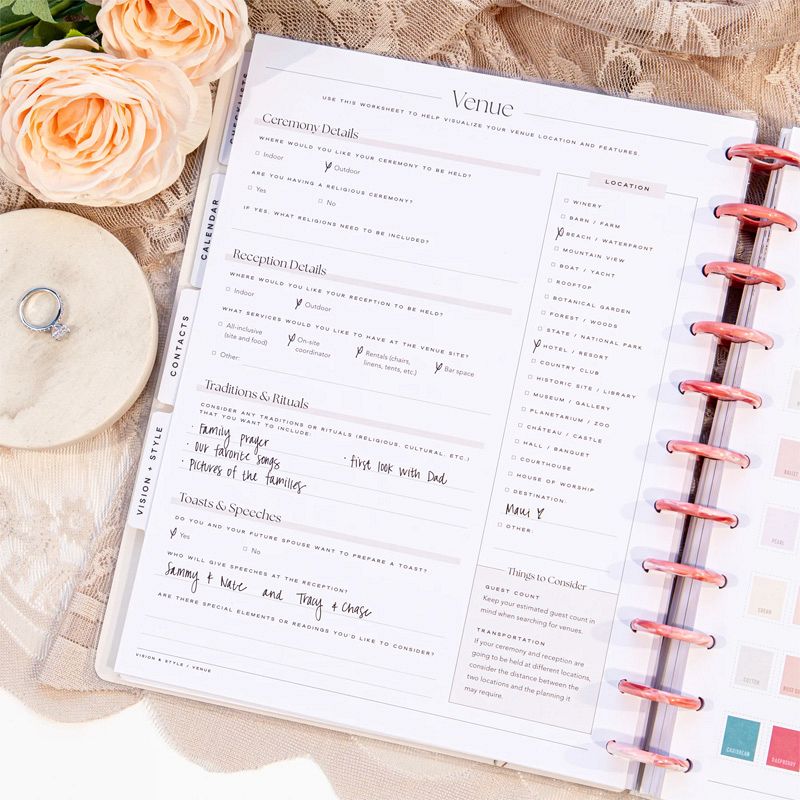 Venue
USE THIS WORKSHEET TO HELP VISUALIZE YOUR VENUE LOCATION AND FEATURES
CHECKLISTS
CALENDAR
CONTACTS
VISION + STYLE
Ceremony Details
WHERE WOULD YOU LIKE YOUR CEREMONY TO BE HELD?
Indoor Outdoor
ARE YOU HAVING A RELIGIOUS CEREMONY?
Yes No
IF YES, WHAT RELIGIONS NEED TO BE INCLUDED?
Reception Details
WHERE WOULD YOU LIKE YOUR RECEPTION TO BE HELD?
Indoor Outdoor
WHAT SERVICES WOULD YOU LIKE TO HAVE AT THE VENUE SITE?
All-inclusive On-site Rentals (chairs, Bar space
(site and food) coordinator linens, tents, etc.)
Other:
Traditions & Rituals
CONSIDER ANY TRADITIONS OR RITUALS (RELIGIOUS, CULTURAL, ETC.)
THAT YOU WANT TO INCLUDE:
· Family prayer
· Our favorite songs · First look with Dad
· Pictures of the families
Toasts & Speeches
DO YOU AND YOUR FUTURE SPOUSE WANT TO PREPARE A TOAST?
Yes No
WHO WILL GIVE SPEECHES AT THE RECEPTION?
Sammy + Nate and Tracy + Chase
ARE THERE SPECIAL ELEMENTS OR READINGS YOU'D LIKE TO CONSIDER?
VISION & STYLE / VENUE
LOCATION
WINERY
BARN / FARM
BEACH / WATERFRONT
MOUNTAIN VIEW
BOAT / YACHT
ROOFTOP
BOTANICAL GARDEN
FOREST / WOODS
STATE / NATIONAL PARK
HOTEL / RESORT
COUNTRY CLUB
HISTORIC SITE / LIBRARY
MUSEUM / GALLERY
PLANETARIUM / ZOO
CHÂTEAU / CASTLE
HALL / BANQUET
COURTHOUSE
HOUSE OF WORSHIP
DESTINATION:
Maui
OTHER:
Things to Consider
GUEST COUNT
Keep your estimated guest count in
mind when searching for venues.
TRANSPORTATION
If your ceremony and reception are
going to be held at different locations,
consider the distance between the
two locations and the planning it
may require.
BALLET
CARIBBEAN